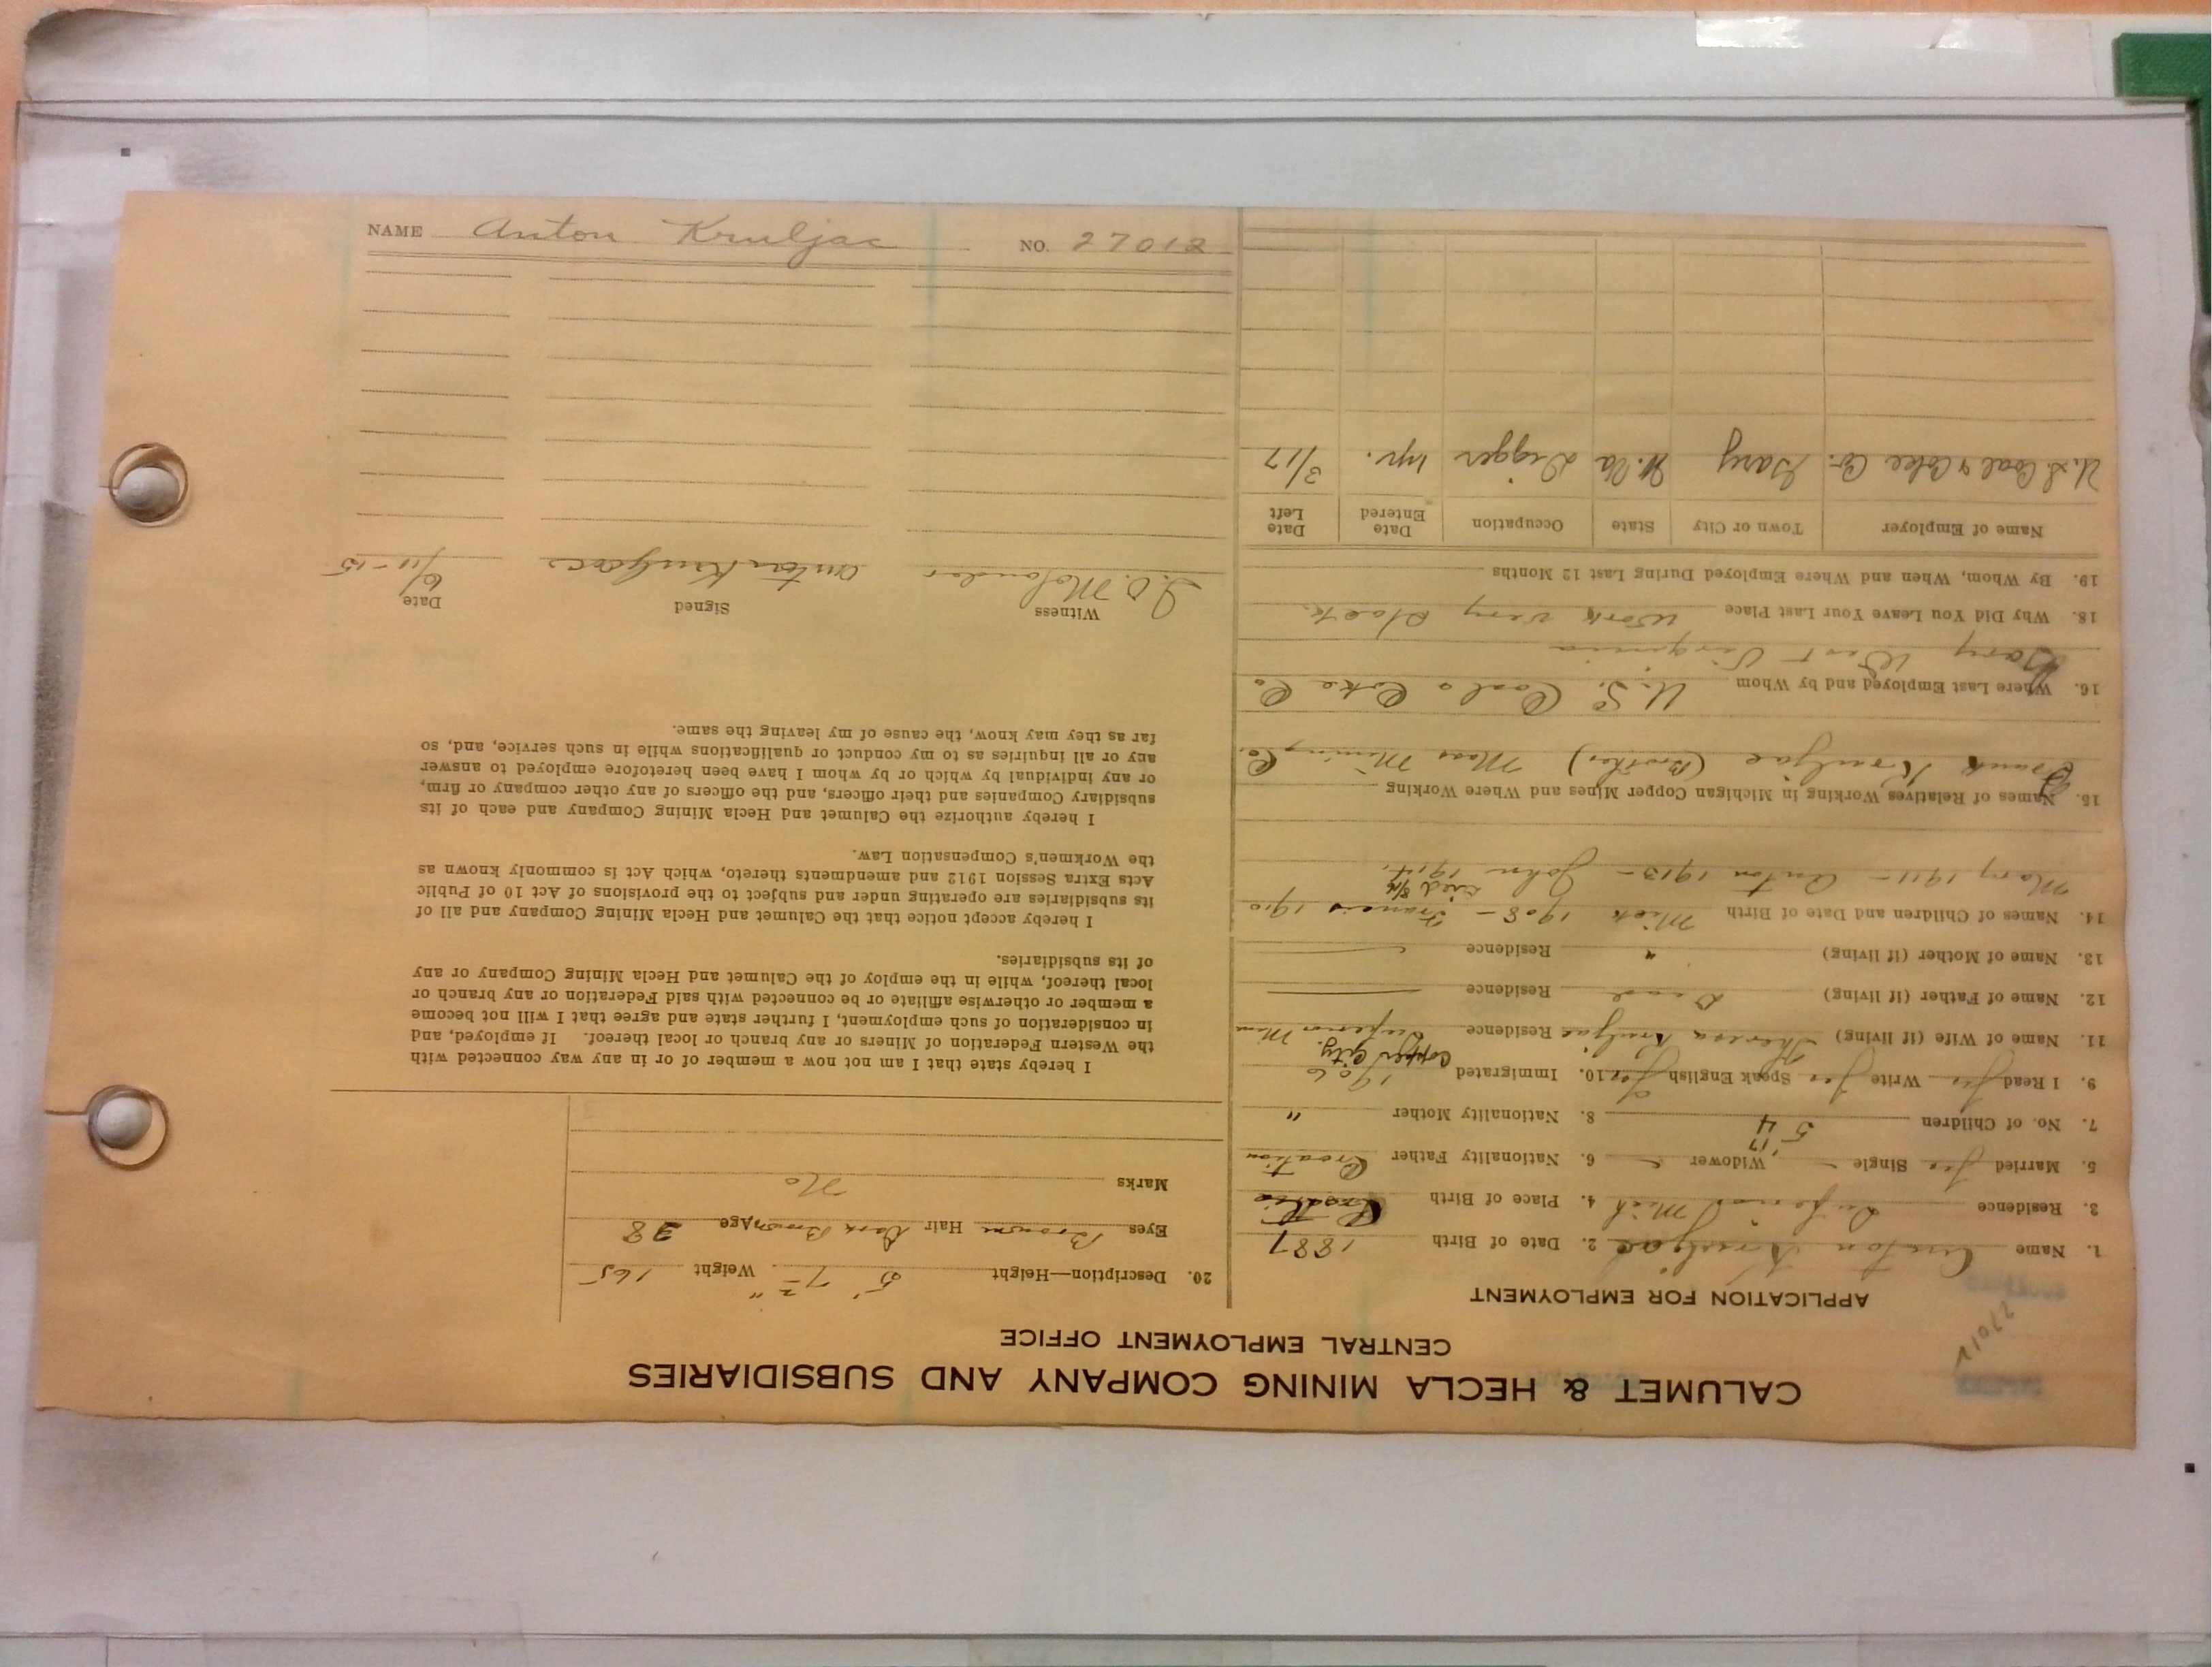 CALUMET & HECLA MINING COMPANY AND SUBSIDIARIES
CENTRAL EMPLOYMENT OFFICE
27012
APPLICATION FOR EMPLOYMENT
1. Name Anton Kruljac 2. Date of Birth 1887
3. Residence Superior Mich 4. Place of Birth
5. Married yes Single Widower 6. Nationality Father Croatian
7. No. of Children 5 4 8. Nationality Mother "
9. I Read yes Write yes Speak English yes 10. Immigrated 1906
Copper City.
11. Name of Wife (if living) Theresa Kruljac Residence Superior
12. Name of Father (if living) Dead Residence
13. Name of Mother (if living) " Residence
14. Names of Children and Date of Birth Mick 1908 - Francis 1910
Died 8/14
Mary 1911 - Anton 1913 - John 1914.
15. Names of Relatives Working in Michigan Copper Mines and Where Working
Frank Kruljac (Brother) Mass Mining Co.
16. Where Last Employed and by Whom U.S. Coal & Coke Co
Gary West Virginia
18. Why Did You Leave Your Last Place Work very slack.
19. By Whom, When and Where Employed During Last 12 Months
Name of Employer Town or City State Occupation Date Entered Date Left
U.S. Coal & Coke Co. Gary W.Va Digger 1yr. 3/17
20. Description—Height 5' 7½" Weight 165
Eyes Brown Hair Dark Brown Age 28
Marks No
I hereby state that I am not now a member of or in any way connected with
the Western Federation of Miners or any branch or local thereof. If employed, and
in consideration of such employment, I further state and agree that I will not become
a member or otherwise affiliate or be connected with said Federation or any branch or
local thereof, while in the employ of the Calumet and Hecla Mining Company or any
of its subsidiaries.
I hereby accept notice that the Calumet and Hecla Mining Company and all of
its subsidiaries are operating under and subject to the provisions of Act 10 of Public
Acts Extra Session 1912 and amendments thereto, which Act is commonly known as
the Workmen's Compensation Law.
I hereby authorize the Calumet and Hecla Mining Company and each of its
subsidiary Companies and their officers, and the officers of any other company or firm,
or any individual by which or by whom I have been heretofore employed to answer
any or all inquiries as to my conduct or qualifications while in such service, and, so
far as they may know, the cause of my leaving the same.
Witness Signed Date
Molander Anton Kruljac 6/11-15
NAME Anton Kruljac NO. 27012